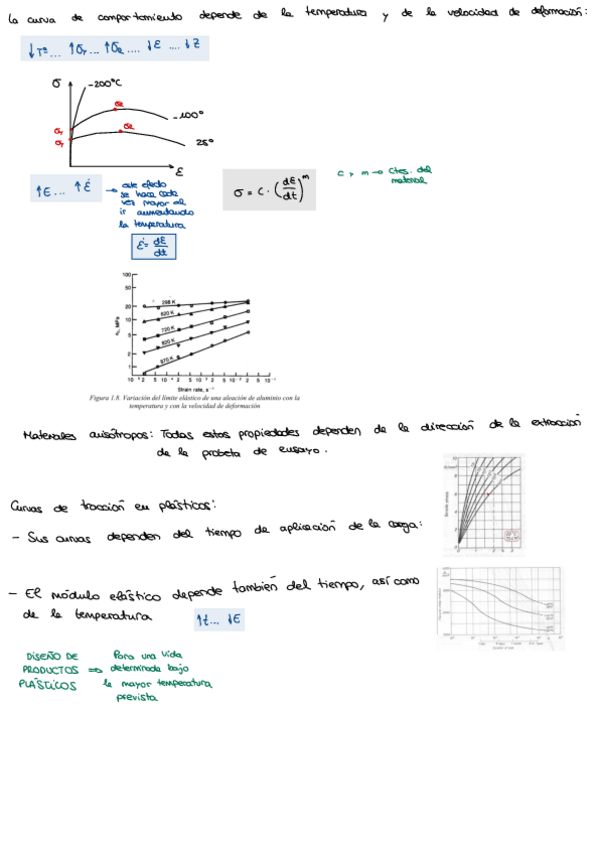 La curva de comportamiento depende de la temperatura y de la velocidad de deformación:
↓Tª ... ↑σy ... ↑σR .... ↓ε .... ↓Z
σ
-200°C
σR
-100°
σy
σR
25°
σy
ε
↑E ... ↑ε̇
→ este efecto
se hace cada
vez mayor al
ir aumentando
la temperatura
σ = C · (dε/dt)^m
C y m → Ctes. del
material
ε̇ = dε/dt
100
50
20
10
5
2
1
298 K
620 K
720 K
820 K
870 K
Strain rate, s⁻¹
Figura 1.8. Variación del límite elástico de una aleación de aluminio con la
temperatura y con la velocidad de deformación
Materiales anisótropos: Todas estas propiedades dependen de la dirección de la extracción
de la probeta de ensayo.
Curvas de tracción en plásticos:
- Sus curvas dependen del tiempo de aplicación de la carga:
- El módulo elástico depende también del tiempo, así como
de la temperatura
↑t... ↓E
DISEÑO DE
PRODUCTOS ⇒
PLÁSTICOS
Para una vida
determinada bajo
la mayor temperatura
prevista